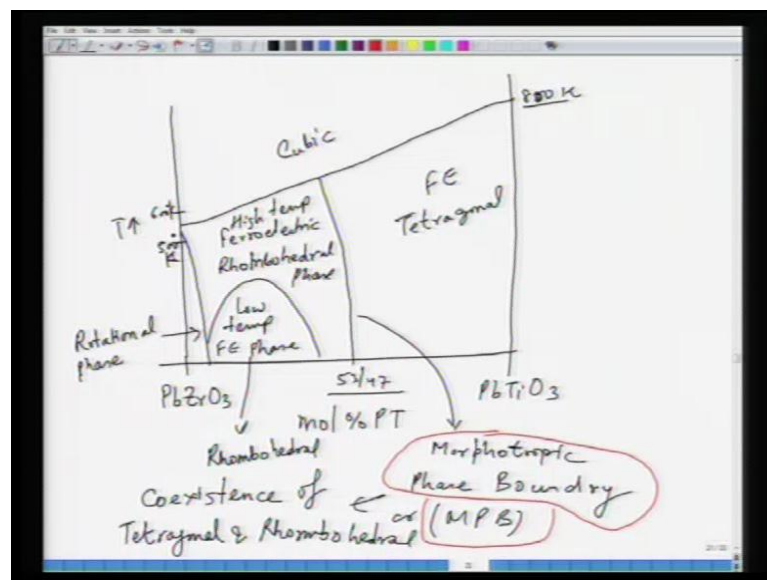 File Edit View Insert Actions Tools Help
800 K
Cubic
FE
Tetragonal
T↑
600K
500
K
High temp
ferroelectric
Rhombohedral
phase
Low
temp
FE phase
Rotational
phase
PbZrO3
53/47
PbTiO3
mol % PT
Rhombohedral
Morphotropic
Phase Boundry
or (MPB)
Coexistence of
Tetragmal & Rhombohedral